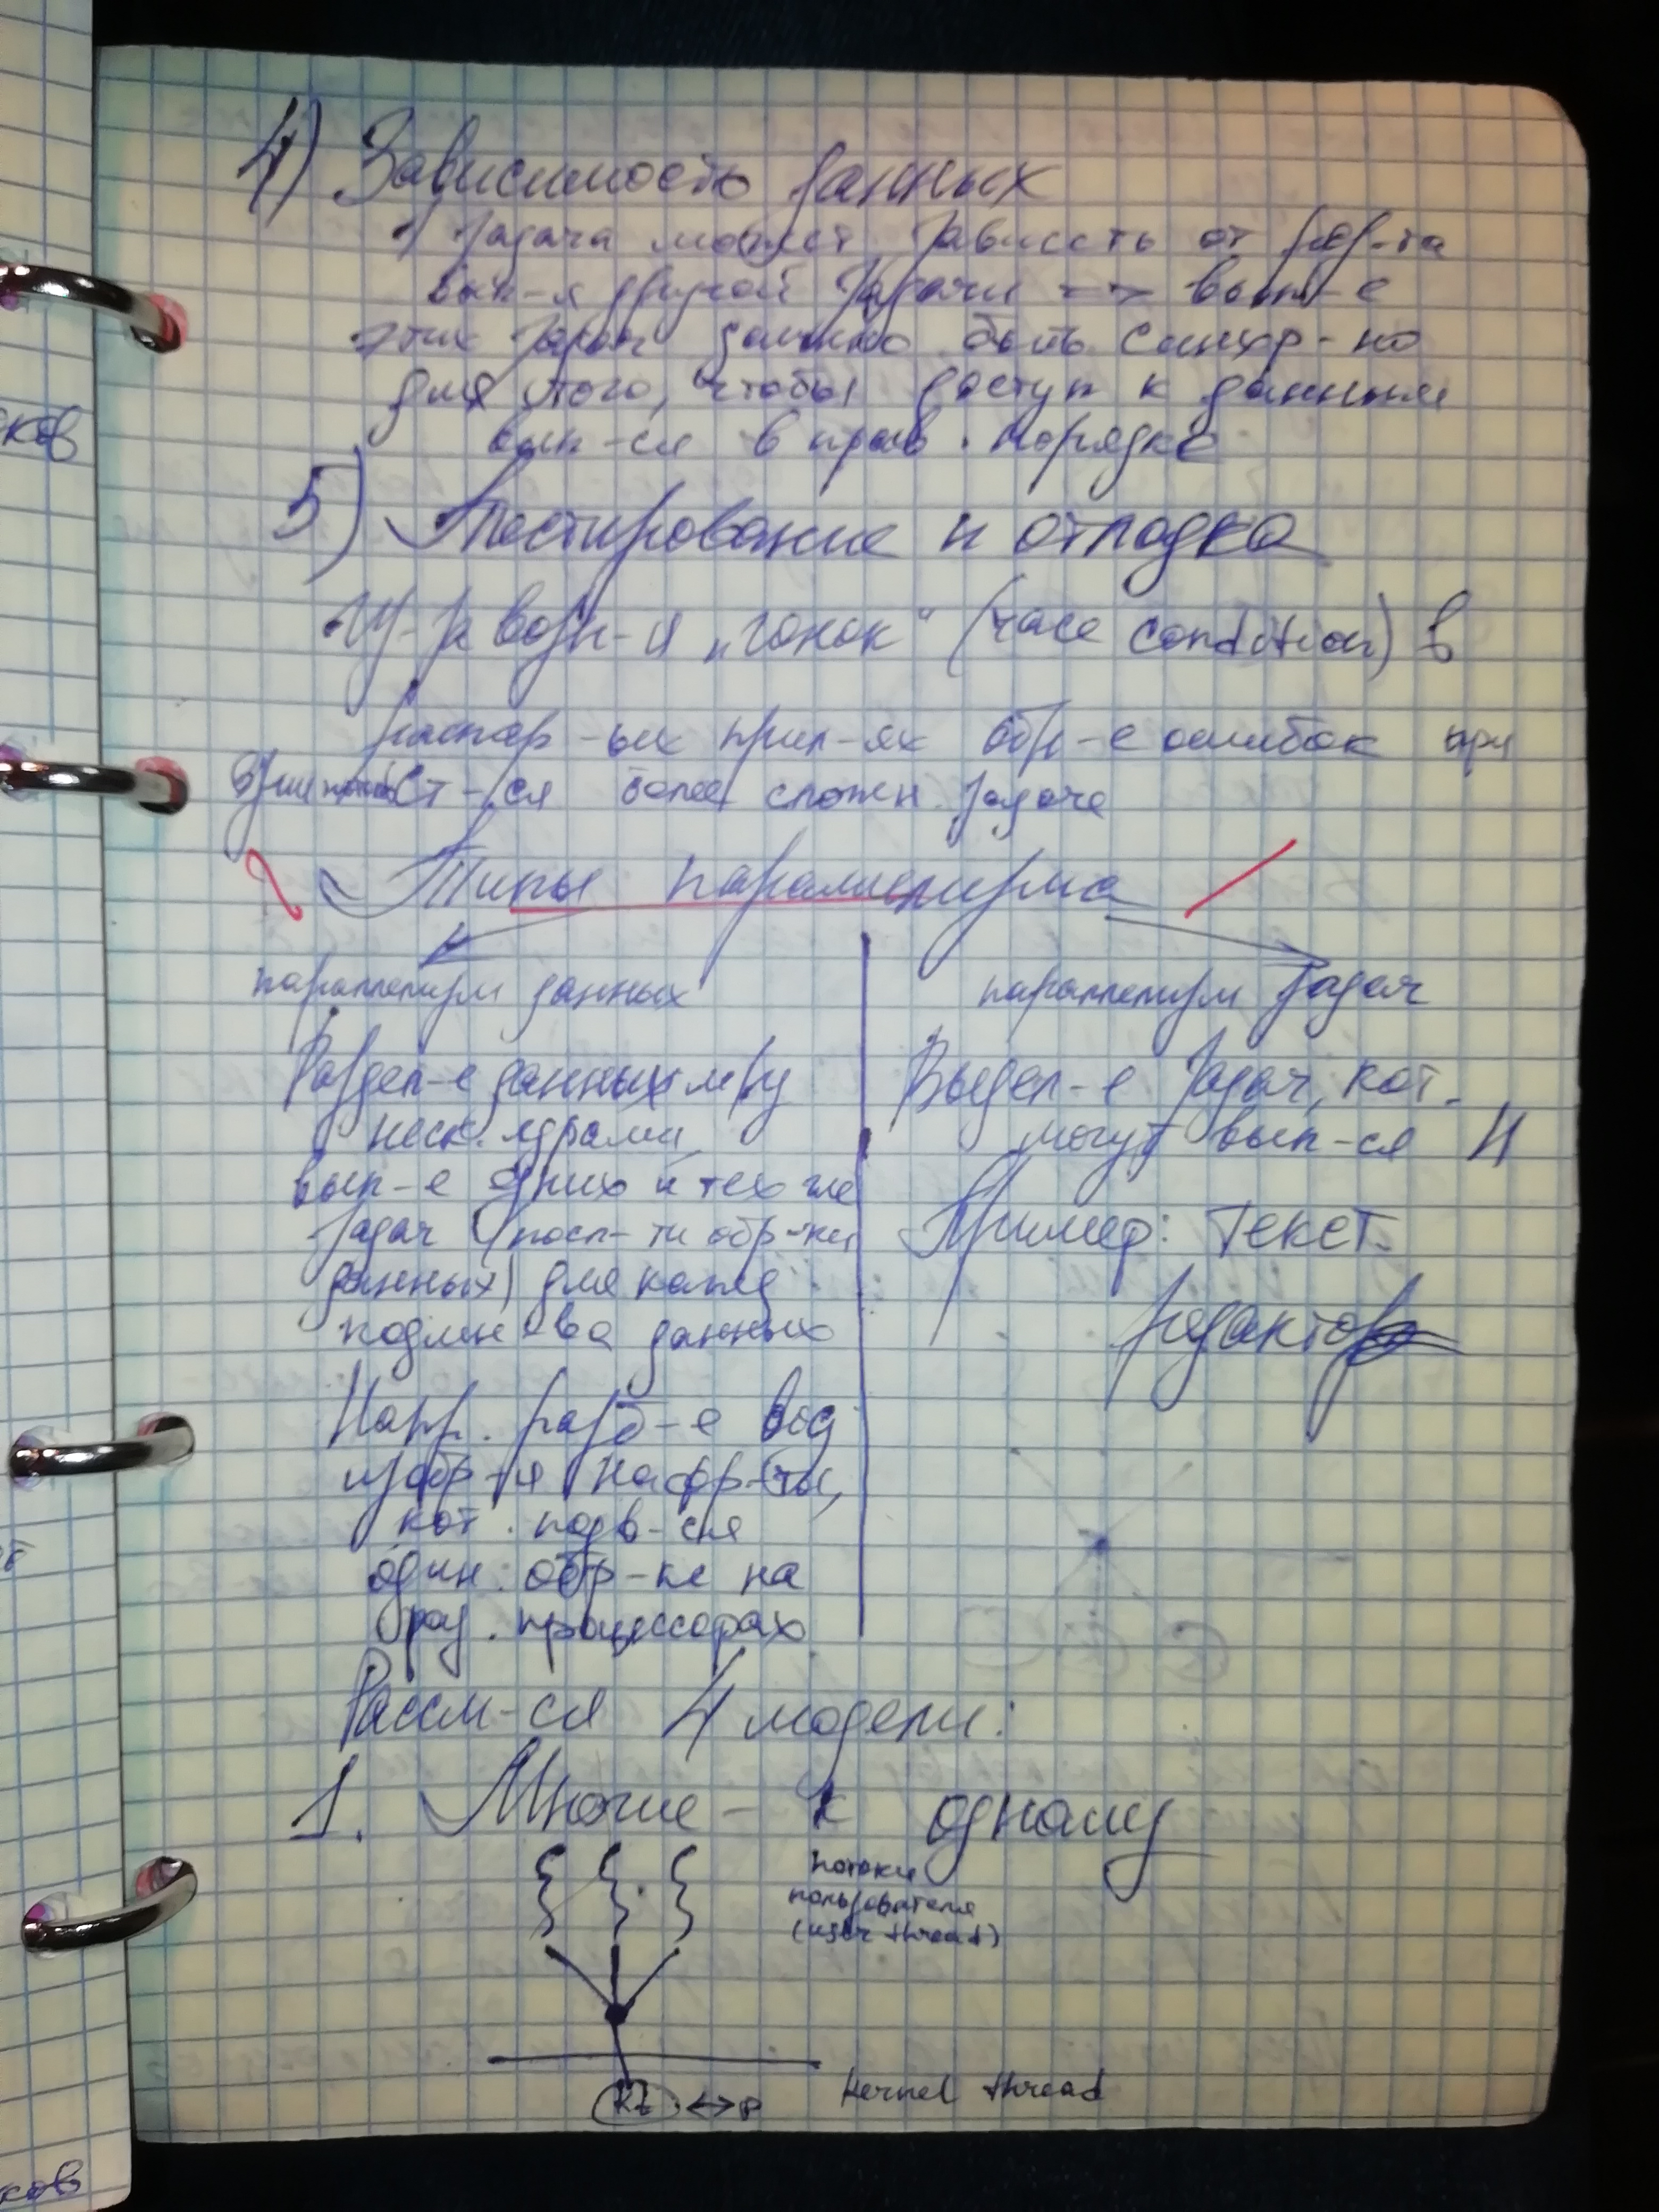 4) Зависимость данных
1) Задача может зависеть от рез-та
вып-я другой задачи => вып-е
этих задач должно быть синхр-но
для того, чтобы доступ к данным
вып-ся в прав. порядке
5) Тестирование и отладка
Из-за возн-я "гонок" (race condition) в
распар-ых прил-ях обр-е ошибок при
ст-ся более сложн. задаче
Типы параллелизма
параллелизм данных
Раздел-е данных м/у
неск. ядрами,
вып-е одних и тех же
задач (посл-ти обр-ки
данных) для кажд.
подмн-ва данных
Напр. разб-е вход
изобр-я на фр-ты,
кот. подв-ся
один. обр-ке на
раз. процессорах
параллелизм задач
Выдел-е задач, кот.
могут вып-ся //
Пример: текст.
редактор
Рассм-ся 4 модели:
1. Многие - к одному
потоки
пользователя
(user thread)
kt <-> P
kernel thread
ков
ков